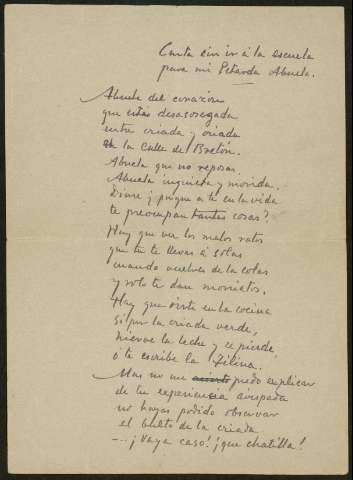 Carta sin ir á la escuela
para mi Petarda Abuela.
Abuela del corazón
que estás desasosegada
entre criada y criada
En la Calle de Bretón.
Abuela que no reposa
Abuela inquieta y movida.
Dime ¿porque a ti en la vida
te preocupan tantas cosas?
Hay que ver los malos ratos
que tú te llevas á solas
cuando vuelves de la colas
y solo te dan moniatos.
Hay que oirte en la cocina
si por la criada verde,
hierve la leche y se pierde,
ó te escribe la
Mas no me puedo explicar
de tu experiencia
no hayas podido observar
el bulto de la criada
-... ¡Vaya caso! ¡que chatilla!